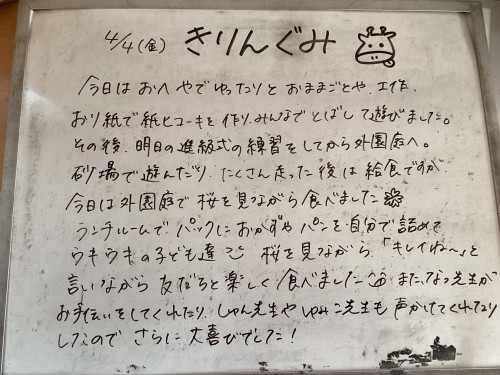 4/4(金) きりんぐみ
今日はおへやでゆったりと おままごとや、工作、
おり紙で紙ヒコーキを作り、みんなでとばして遊びました。
その後、明日の進級式の練習をしてから外園庭へ。
砂場で遊んだり、たくさん走った後は給食ですが、
今日は外園庭で桜を見ながら食べました
ランチルームでパックにおかずやパンを自分で詰めて
ウキウキの子ども達 桜を見ながら、「キレイね〜」と
言いながら友だちと楽しく食べました また、なつ先生が
お手伝いをしてくれたり、しゅん先生やゆみこ先生も声かけてくれたり
したので さらに大喜びでした!